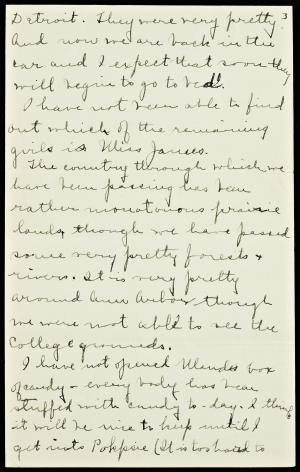 3
Detroit. They were very pretty.
And now we are back in the
car and I expect that soon they
will begin to go to bed.
I have not been able to find
out which of the remaining
girls is Miss James.
The country through which we
have been passing has been
rather monotonous prairie
lands, though we have passed
some very pretty forests &
rivers. It is very pretty
around Ann Arbor though
we were not able to see the
College grounds.
I have not opened Mendes box
of candy - every body has been
stuffed with candy to-day. I think
it will be nice to keep until I
get into Pokpsie (It is too hard to